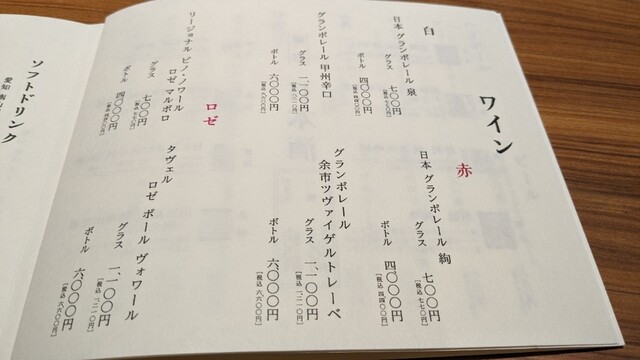 ワイン
白
日本 グランポレール 泉
グラス 七〇〇円
[税込 七七〇円]
ボトル 四、〇〇〇円
[税込 四四〇〇円]
グランポレール 甲州辛口
グラス 一、一〇〇円
[税込 一、二一〇円]
ボトル 六、〇〇〇円
[税込 六六〇〇円]
赤
日本 グランポレール 絢
グラス 七〇〇円
[税込 七七〇円]
ボトル 四、〇〇〇円
[税込 四四〇〇円]
グランポレール
余市ツヴァイゲルトレーベ
グラス 一、一〇〇円
[税込 一、二一〇円]
ボトル 六、〇〇〇円
[税込 六六〇〇円]
ロゼ
リージョナル ピノ・ノワール
ロゼ マルボロ
グラス 七〇〇円
[税込 七七〇円]
ボトル 四、〇〇〇円
[税込 四四〇〇円]
タヴェル
ロゼ ポール ヴォワール
グラス 一、一〇〇円
[税込 一、二一〇円]
ボトル 六、〇〇〇円
[税込 六六〇〇円]
ソフトドリンク
愛知